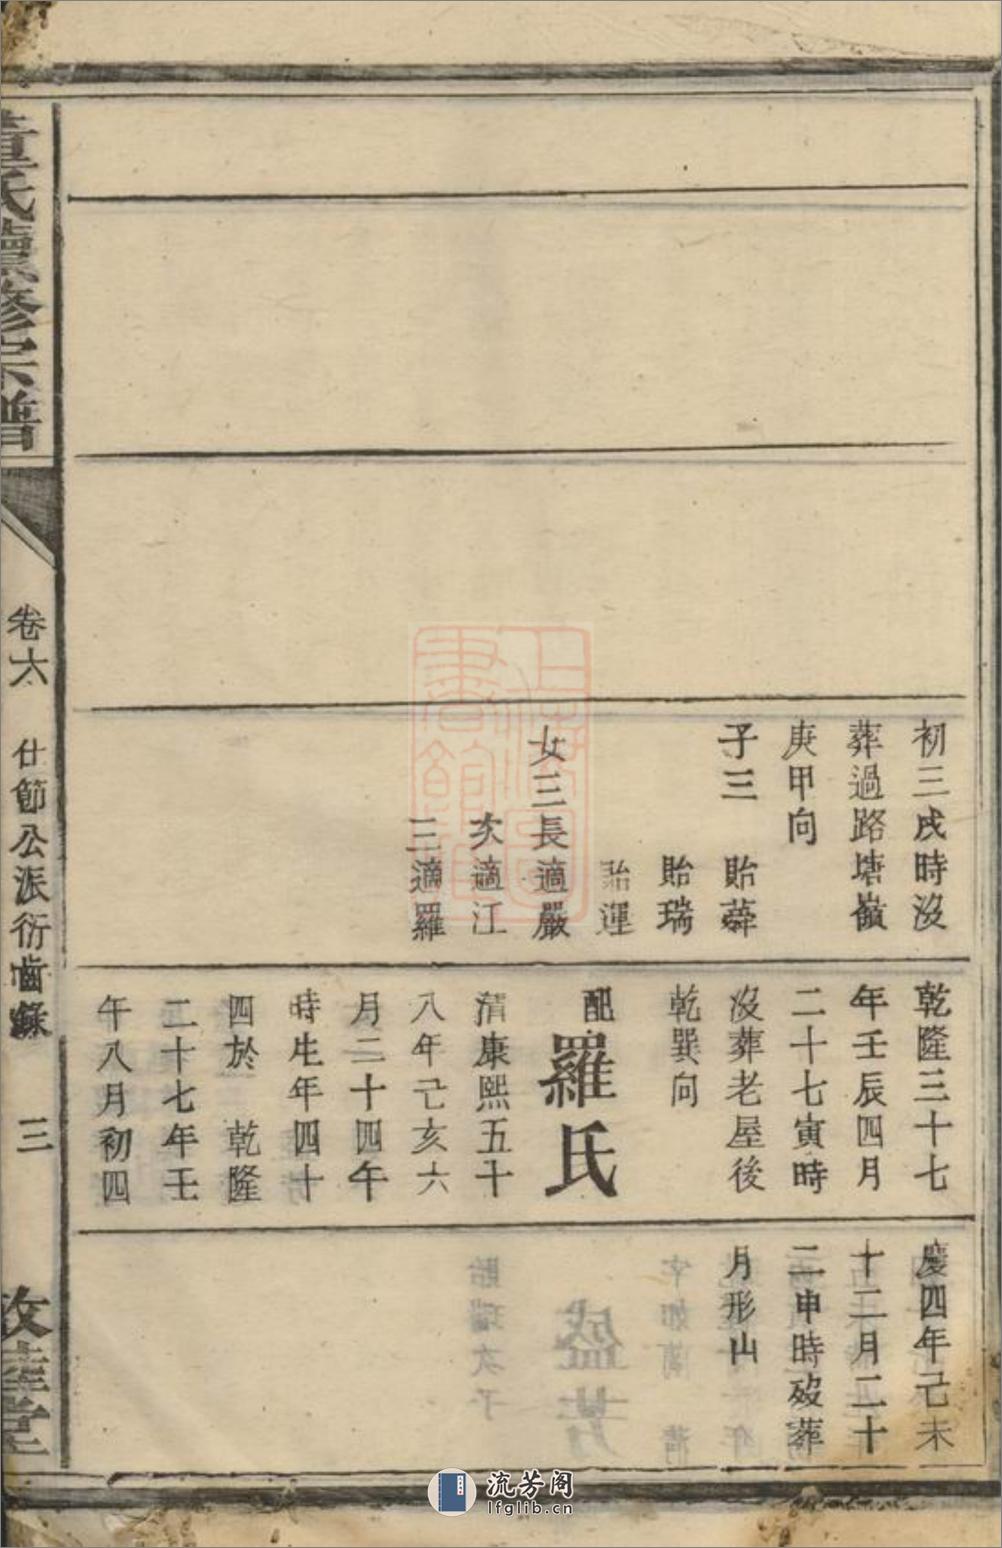 初三戌時沒
葬過路塘嶺
庚甲向
子三 貽蕣
貽瑞
貽運
女三長適嚴
次適江
三適羅
乾隆三十七
年壬辰四月
二十七寅時
沒葬老屋後
乾巽向
配羅氏
清康熙五十
八年己亥六
月二十四午
時生年四十
四於 乾隆
二十七年壬
午八月初四
慶四年己未
十二月二十
二申時歿葬
月形山
黃氏續修宗譜
卷六 仕節公派衍齒錄 三
敦睦堂
流芳阁
lfglib.cn